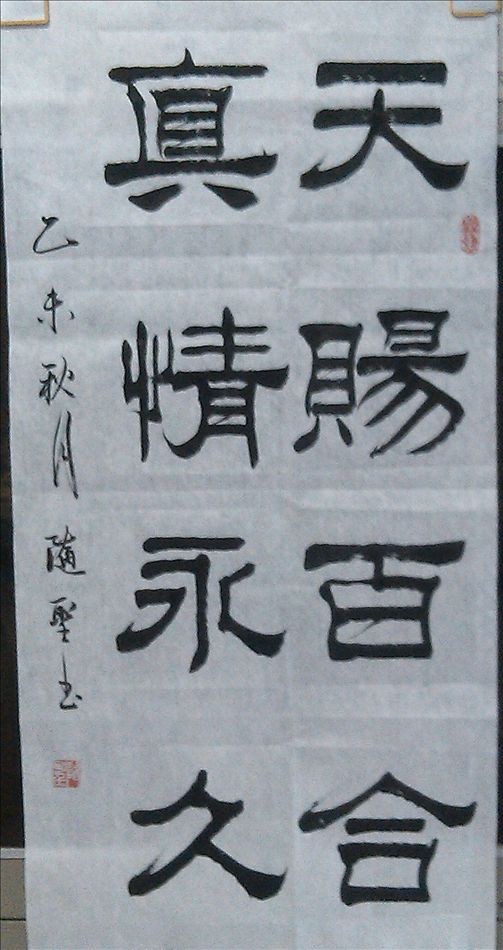 天賜百合
真情永久
乙未秋月随聖书